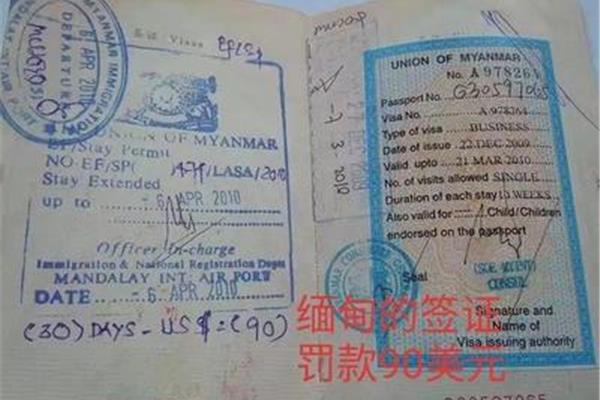 Visas
MYANMAR IMMIGRATION
DEPARTURE
APR 2010
MANDALAY INT AIR PORT
UNION OF MYANMAR
EF/Stay Permit
NO-EF/SP( /LASA/2010
Stay Extended
up to - 6 APR 2010
Officer In-charge
Immigration & National Registration Dept:
MANDALAY INT: AIR PORT
DATE - 6 APR 2010
(30) DAYS - US $ = (90)
UNION OF MYANMAR
No. A 978264
Passport No. G30597065
Visa No. A 978264
Type of visa BUSINESS
Date of issue 22 DEC 2009
Valid upto 21 MAR 2010
No. of visits allowed SINGLE
Duration of each stay 10 WEEKS
Also valid for Child/Children
endorsed on the passport
Seal
CONSUL
Signature and
Name of
Visa issuing authority
缅甸的签证
罚款90美元